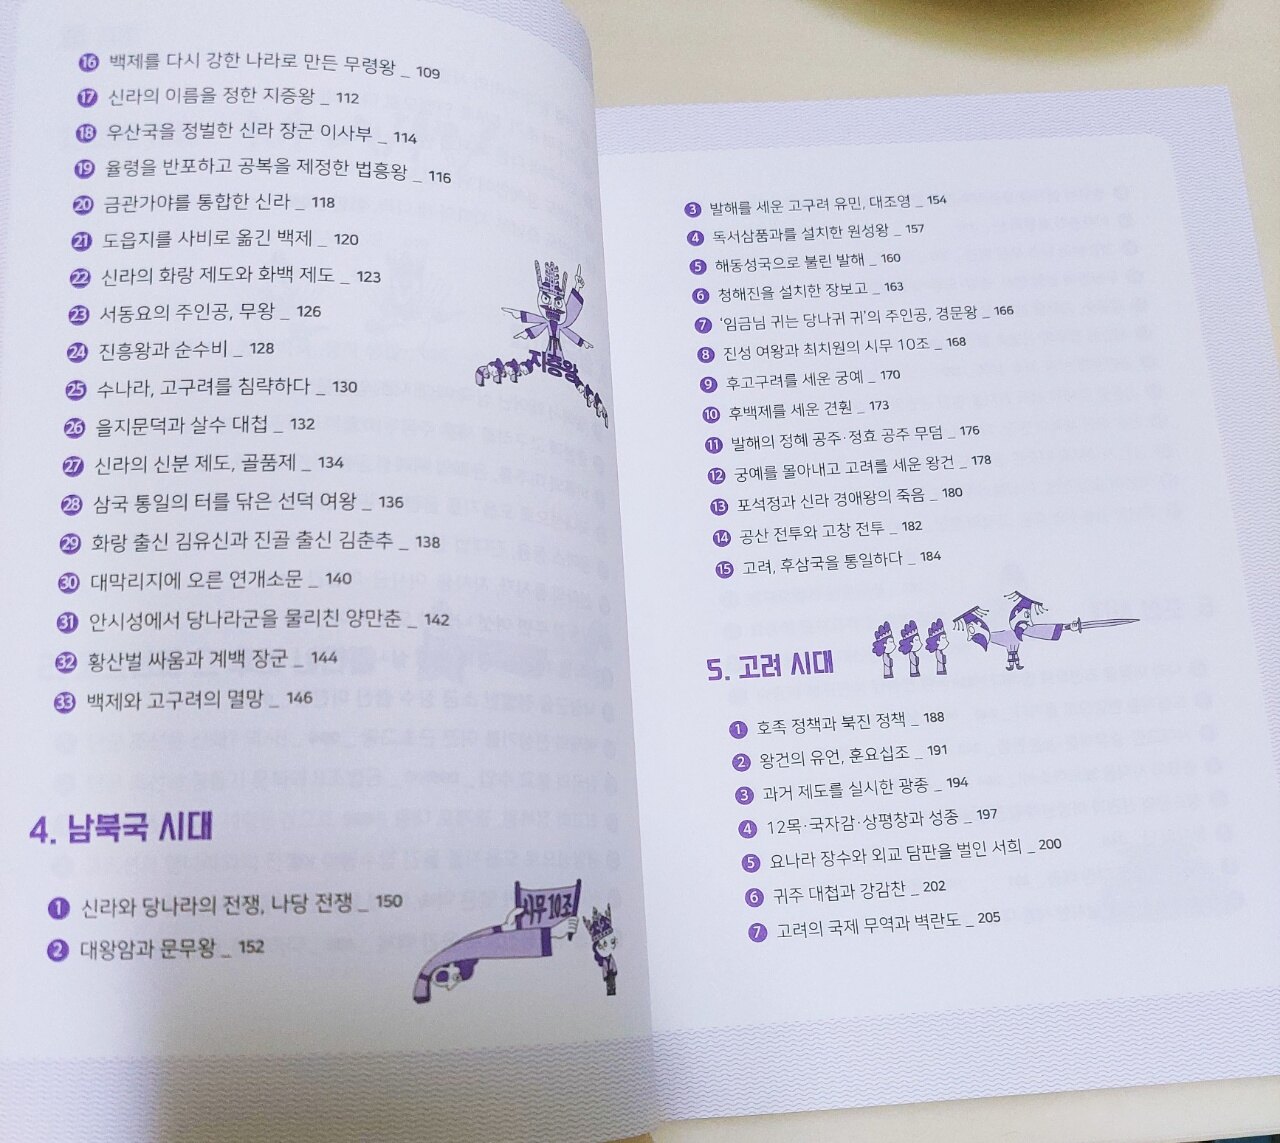 16 백제를 다시 강한 나라로 만든 무령왕 _ 109
17 신라의 이름을 정한 지증왕 _ 112
18 우산국을 정벌한 신라 장군 이사부 _ 114
19 율령을 반포하고 공복을 제정한 법흥왕 _ 116
20 금관가야를 통합한 신라 _ 118
21 도읍지를 사비로 옮긴 백제 _ 120
22 신라의 화랑 제도와 화백 제도 _ 123
23 서동요의 주인공, 무왕 _ 126
24 진흥왕과 순수비 _ 128
25 수나라, 고구려를 침략하다 _ 130
26 을지문덕과 살수 대첩 _ 132
27 신라의 신분 제도, 골품제 _ 134
28 삼국 통일의 터를 닦은 선덕 여왕 _ 136
29 화랑 출신 김유신과 진골 출신 김춘추 _ 138
30 대막리지에 오른 연개소문 _ 140
31 안시성에서 당나라군을 물리친 양만춘 _ 142
32 황산벌 싸움과 계백 장군 _ 144
33 백제와 고구려의 멸망 _ 146
지증왕
4. 남북국 시대
1 신라와 당나라의 전쟁, 나당 전쟁 _ 150
2 대왕암과 문무왕 _ 152
시무 10조
3 발해를 세운 고구려 유민, 대조영 _ 154
4 독서삼품과를 설치한 원성왕 _ 157
5 해동성국으로 불린 발해 _ 160
6 청해진을 설치한 장보고 _ 163
7 '임금님 귀는 당나귀 귀'의 주인공, 경문왕 _ 166
8 진성 여왕과 최치원의 시무 10조 _ 168
9 후고구려를 세운 궁예 _ 170
10 후백제를 세운 견훤 _ 173
11 발해의 정혜 공주·정효 공주 무덤 _ 176
12 궁예를 몰아내고 고려를 세운 왕건 _ 178
13 포석정과 신라 경애왕의 죽음 _ 180
14 공산 전투와 고창 전투 _ 182
15 고려, 후삼국을 통일하다 _ 184
5. 고려 시대
1 호족 정책과 북진 정책 _ 188
2 왕건의 유언, 훈요십조 _ 191
3 과거 제도를 실시한 광종 _ 194
4 12목·국자감·상평창과 성종 _ 197
5 요나라 장수와 외교 담판을 벌인 서희 _ 200
6 귀주 대첩과 강감찬 _ 202
7 고려의 국제 무역과 벽란도 _ 205